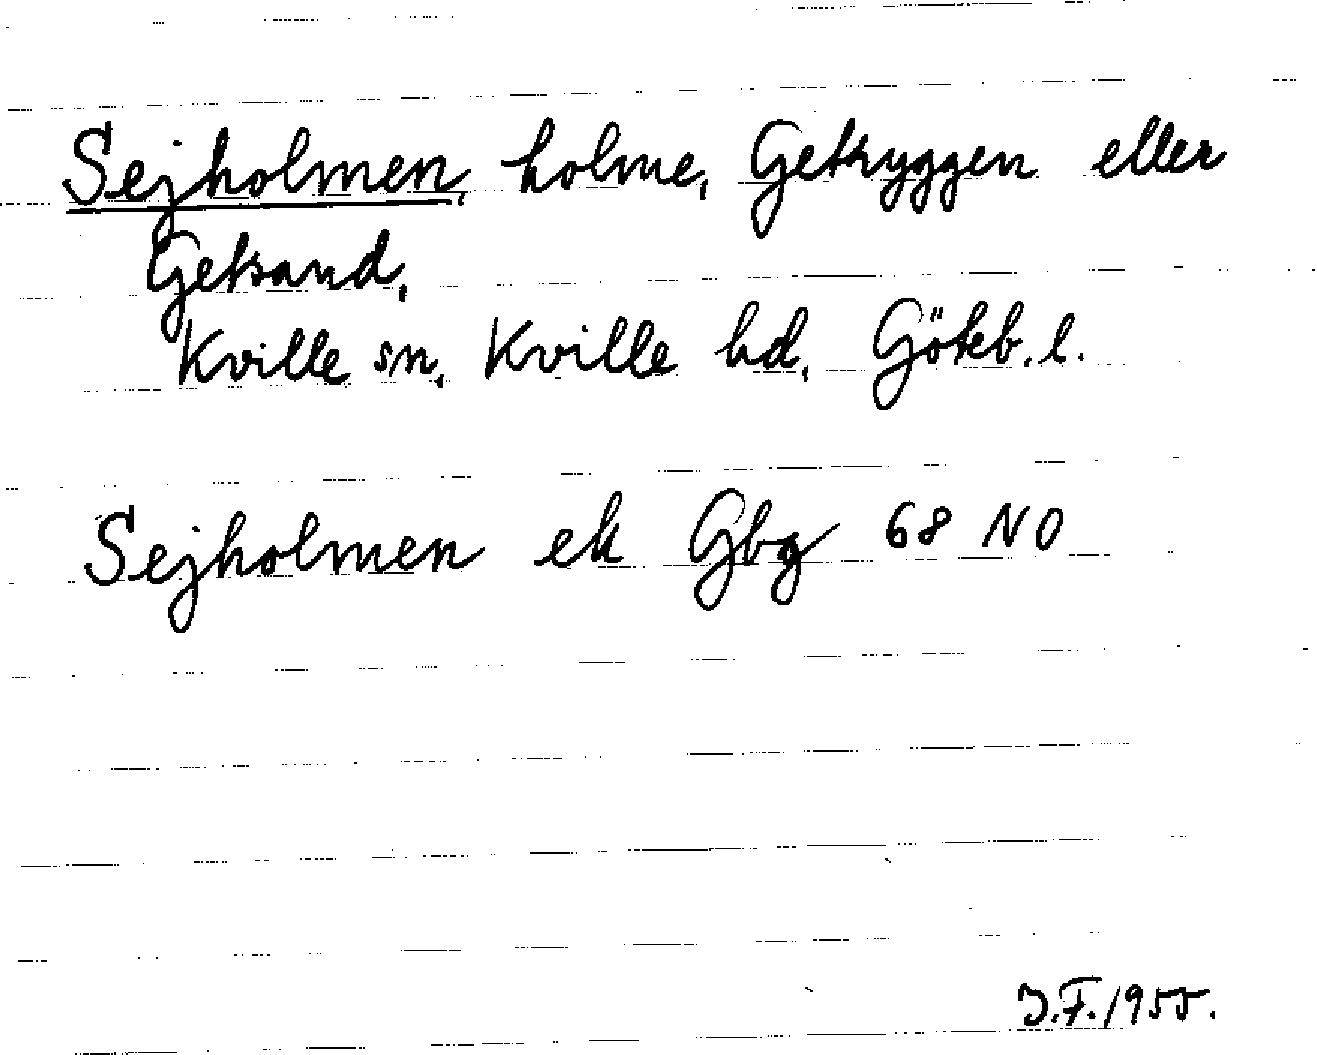 Sejholmen, holme, Getryggen eller
Getsand,
Kville sn, Kville hd, Göteb. l.
Sejholmen ek Gbg 68 NO
J.F. 1955.